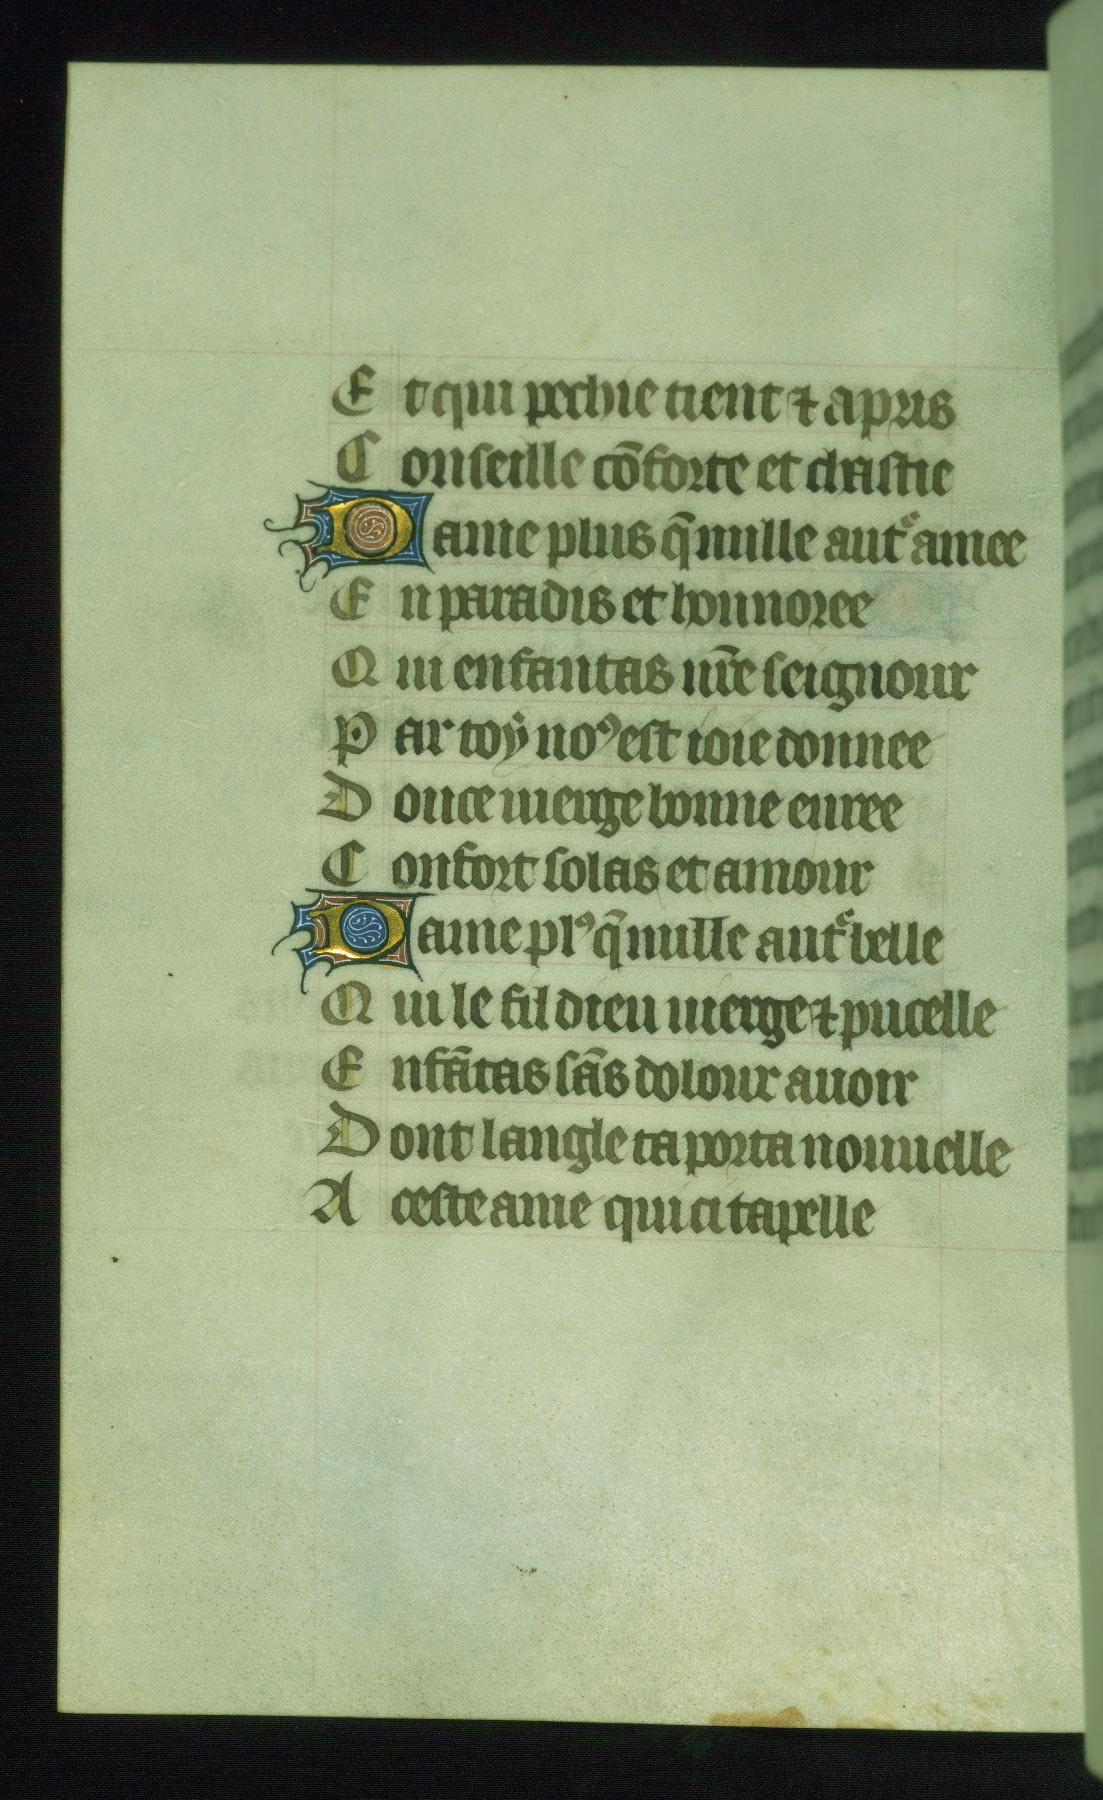 Et qui pechie tient ⁊ apris
Conseille cōforte et chastie
Dame plus q̄ mille autͤ amee
En paradis et honnoree
Qui enfantas nr̄e seignour
Par toẏ noꝰ est ioie donnee
Douce uierge bonne euree
Confort solas et amour
Dame plꝰ q̄ nulle autͤ belle
Qui le fil dieu uierge ⁊ pucelle
Enfātas sās dolour auoir
Dont langle ta porta nouuelle
A ceste ame qui ci tapelle